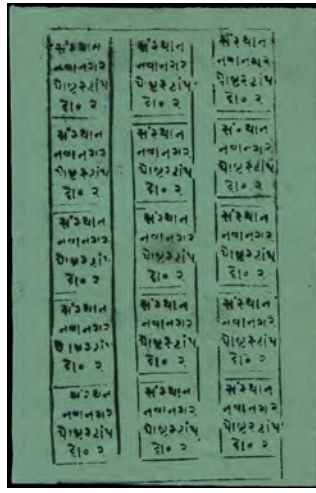 સંસ્થાન
નવાનગર
પોષ્ટસ્ટાંપ
દો૦ ૨
સંસ્થાન
નવાનગર
પોષ્ટસ્ટાંપ
દો૦ ૨
સંસ્થાન
નવાનગર
પોષ્ટસ્ટાંપ
દો૦ ૨
સંસ્થાન
નવાનગર
પોષ્ટસ્ટાંપ
દો૦ ૨
સંસ્થાન
નવાનગર
પોષ્ટસ્ટાંપ
દો૦ ૨
સંસ્થાન
નવાનગર
પોષ્ટસ્ટાંપ
દો૦ ૨
સંસ્થાન
નવાનગર
પોષ્ટસ્ટાંપ
દો૦ ૨
સંસ્થાન
નવાનગર
પોષ્ટસ્ટાંપ
દો૦ ૨
સંસ્થાન
નવાનગર
પોષ્ટસ્ટાંપ
દો૦ ૨
સંસ્થાન
નવાનગર
પોષ્ટસ્ટાંપ
દો૦ ૨
સંસ્થાન
નવાનગર
પોષ્ટસ્ટાંપ
દો૦ ૨
સંસ્થાન
નવાનગર
પોષ્ટસ્ટાંપ
દો૦ ૨
સંસ્થાન
નવાનગર
પોષ્ટસ્ટાંપ
દો૦ ૨
સંસ્થાન
નવાનગર
પોષ્ટસ્ટાંપ
દો૦ ૨
સંસ્થાન
નવાનગર
પોષ્ટસ્ટાંપ
દો૦ ૨